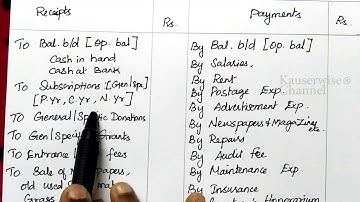 Receipts Rs. Payments Rs.
To Bal. b/d [Op. bal]
Cash in hand
Cash at Bank
To Subscriptions [Gen/Spe]
[P.Yr, C.Yr, N.Yr]
To General/Specific Donations
To Gen/Spe Grants
To Entrance fees
To Sale of papers,
old used
Grass
By Bal. b/d [Op. bal]
By Salaries,
By Rent
By Postage Exp.
By Advertisement Exp.
By Newspapers & Magazines etc.
By Repairs
By Audit fee
By Maintenance Exp.
By Insurance
Honorarium
Kauserwise®
Channel